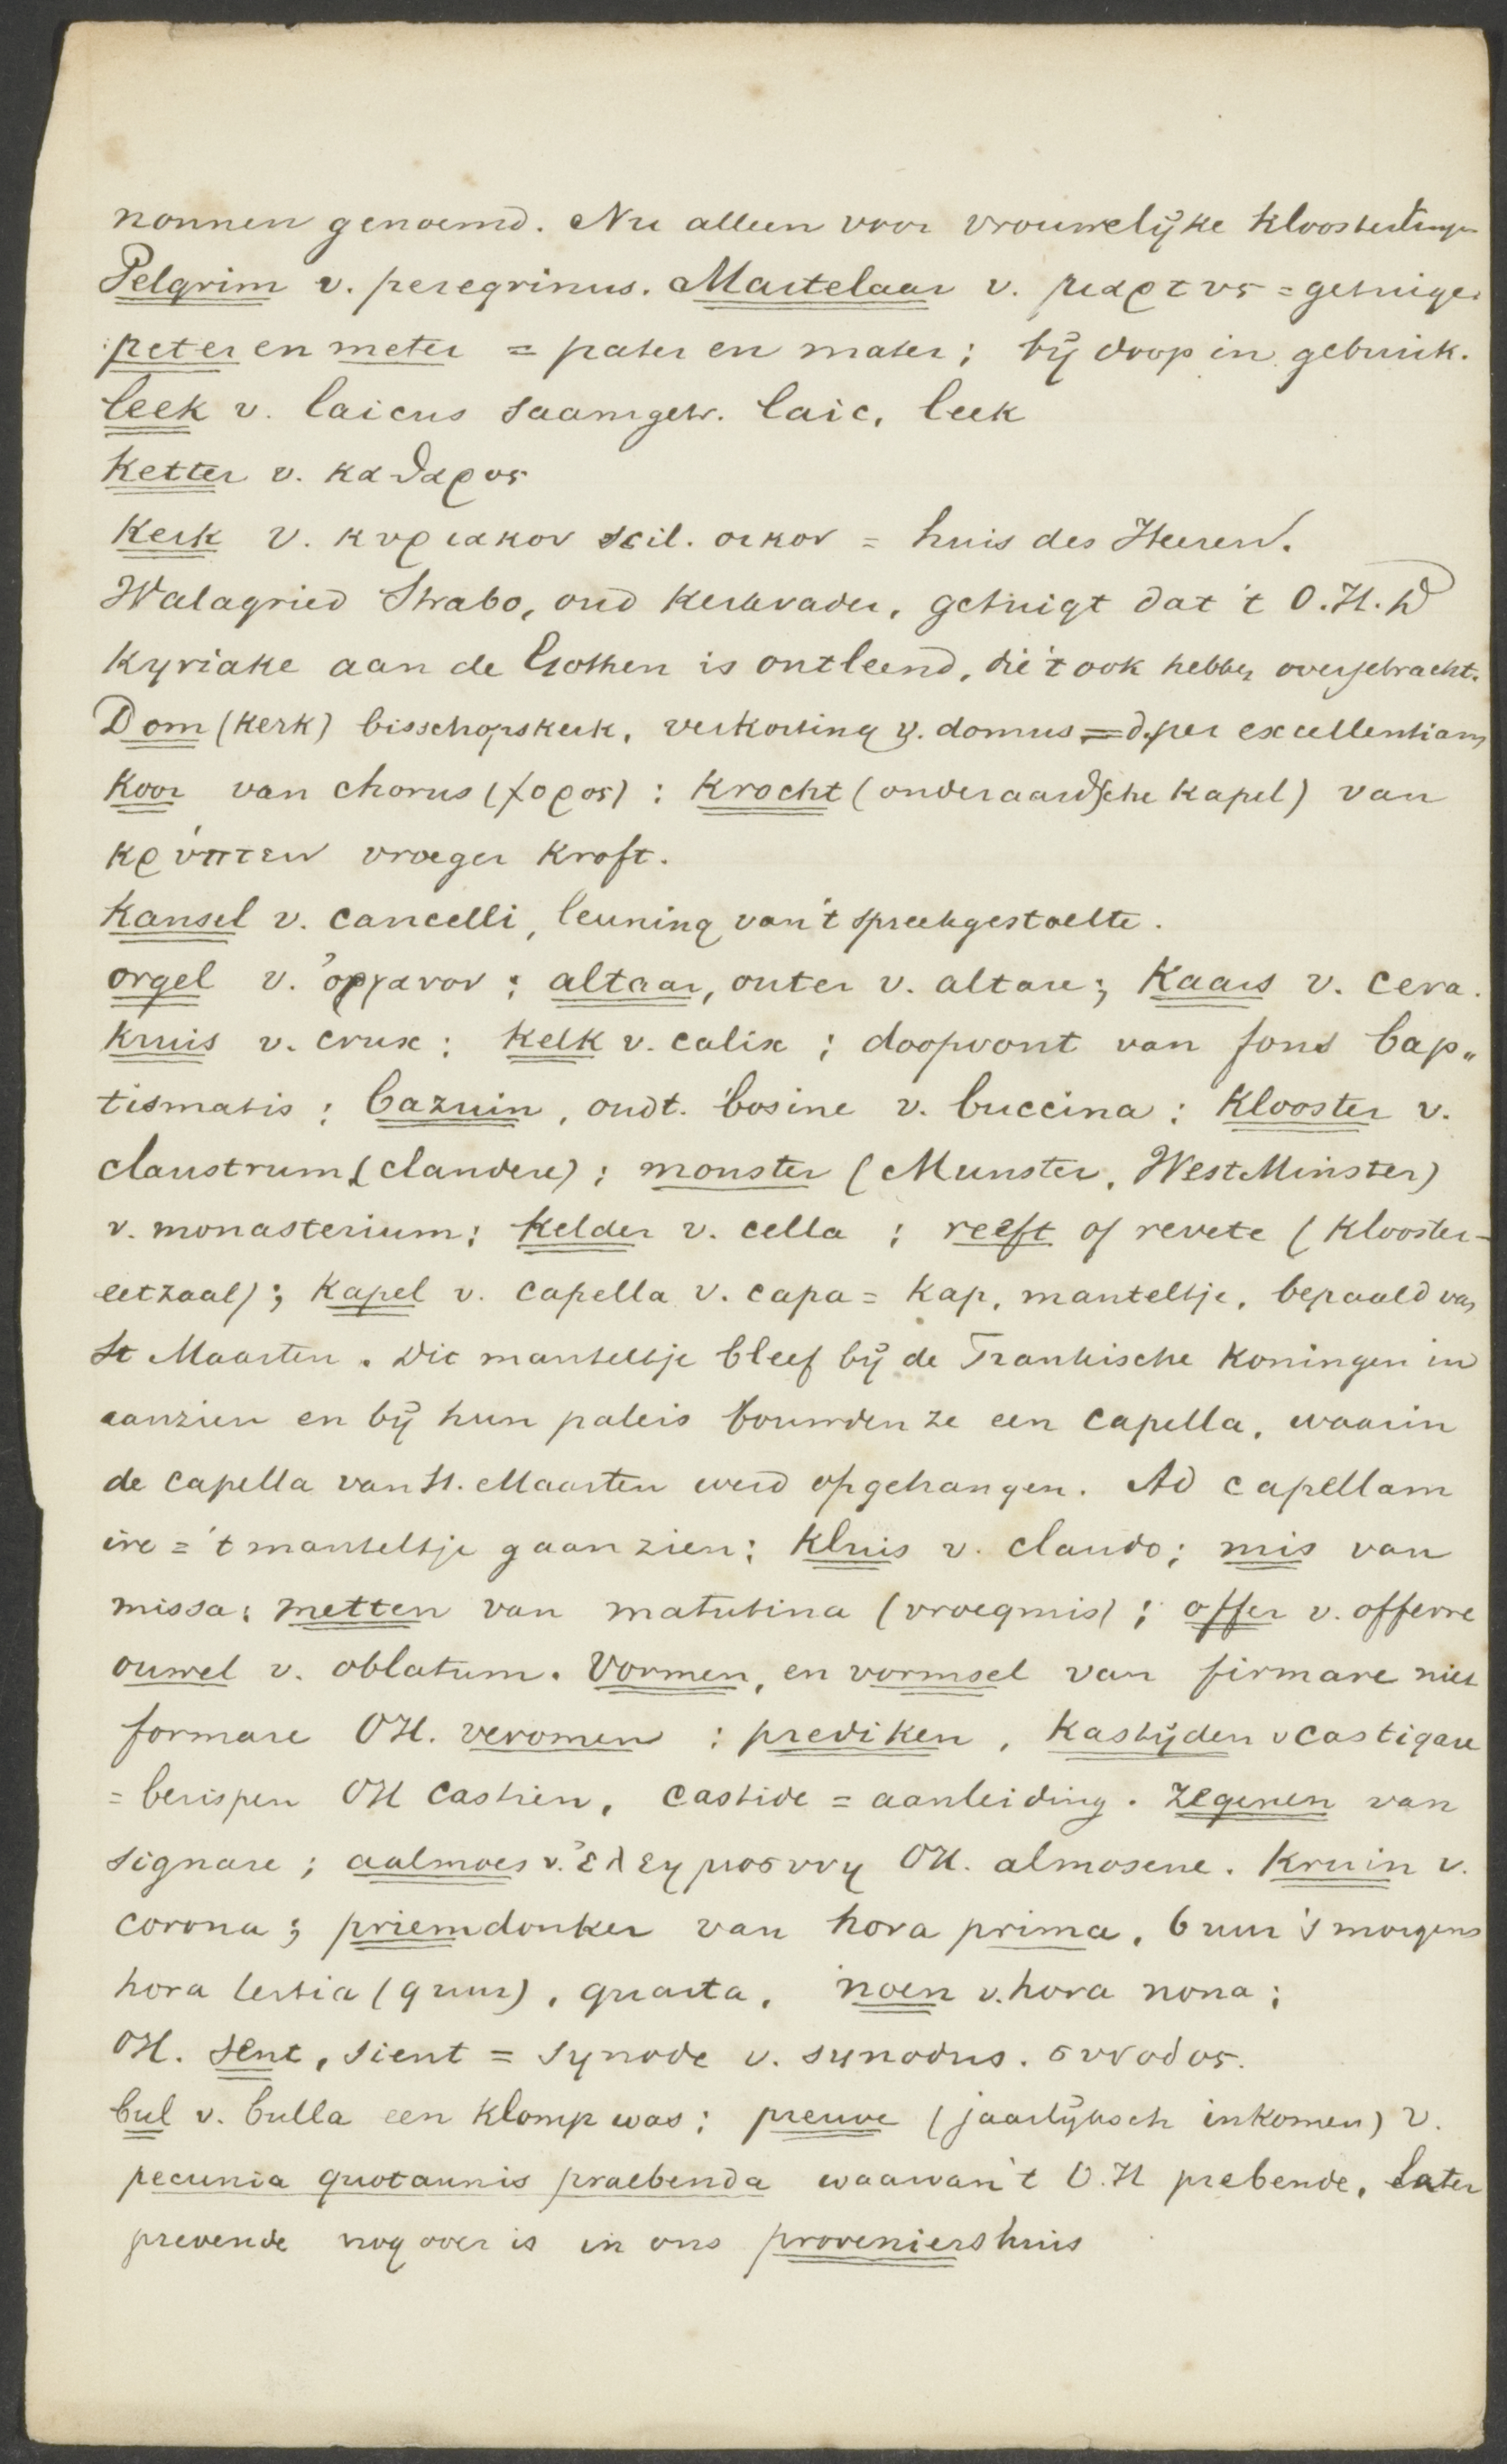 nonnen genoemd. Nu alleen voor vrouwelijke kloosterlingen
Pelgrim v. peregrinus. Martelaar v. μαρτυς = getuige.
peter en meter = pater en mater; bij doop in gebruik.
leek v. laicus saamgetr. laic, leek
Ketter v. καθαρος
Kerk v. κυριακον scil. οικον = huis des Heeren.
Walagried Strabo, oud kerkvader, getuigt dat 't O.H.D
Kyriake aan de Gothen is ontleend, die 't ook hebben overgebracht.
Dom (kerk) bisschopskerk, verkorting v. domus = d. per excellentiam
Koor van chorus (χορος) : Krocht (onderaardsche kapel) van
κρύπτειν vroeger Kroft.
Kansel v. cancelli, leuning van 't spreekgestoelte.
orgel v. ὀργανον; altaar, outer v. altare; Kaars v. cera.
Kruis v. crux: Kelk v. calix; doopvont van fons bap„
tismatis; bazuin, oudt. bosine v. buccina: Klooster v.
claustrum (claudere); monster (Munster, WestMinster)
v. monasterium; Kelder v. cella; reeft of revete (klooster-
eetzaal); Kapel v. capella v. capa = kap, manteltje, bepaald van
St Maarten. Dit manteltje bleef bij de Frankische Koningen in
aanzien en bij hun paleis bouwden ze een capella, waarin
de capella van St. Maarten werd opgehangen. Ad capellam
ire = 't manteltje gaan zien; Kluis v. claudo; mis van
missa; metten van matutina (vroegmis); offer v. offerre
ouwel v. oblatum. Vormen, en vormsel van firmare niet
formare OH. veromen : prediken, Kastijden v castigare
= berispen OH castien, castide = aanleiding. Zegenen van
signare; aalmoes v. ἐλεημοσυνη OH. almosene. Kruin v.
corona; priemdonker van hora prima, 6 uur 's morgens
hora tertia (9 uur), quarta, noen v. hora nona;
OH. Sent, sient = Synode v. synodus. συνοδος.
bul v. bulla een klomp was; preuve (jaarlijksch inkomen) v.
pecunia quotannis praebenda waarvan 't O.H prebende, later
prevende nog over is in ons proveniershuis